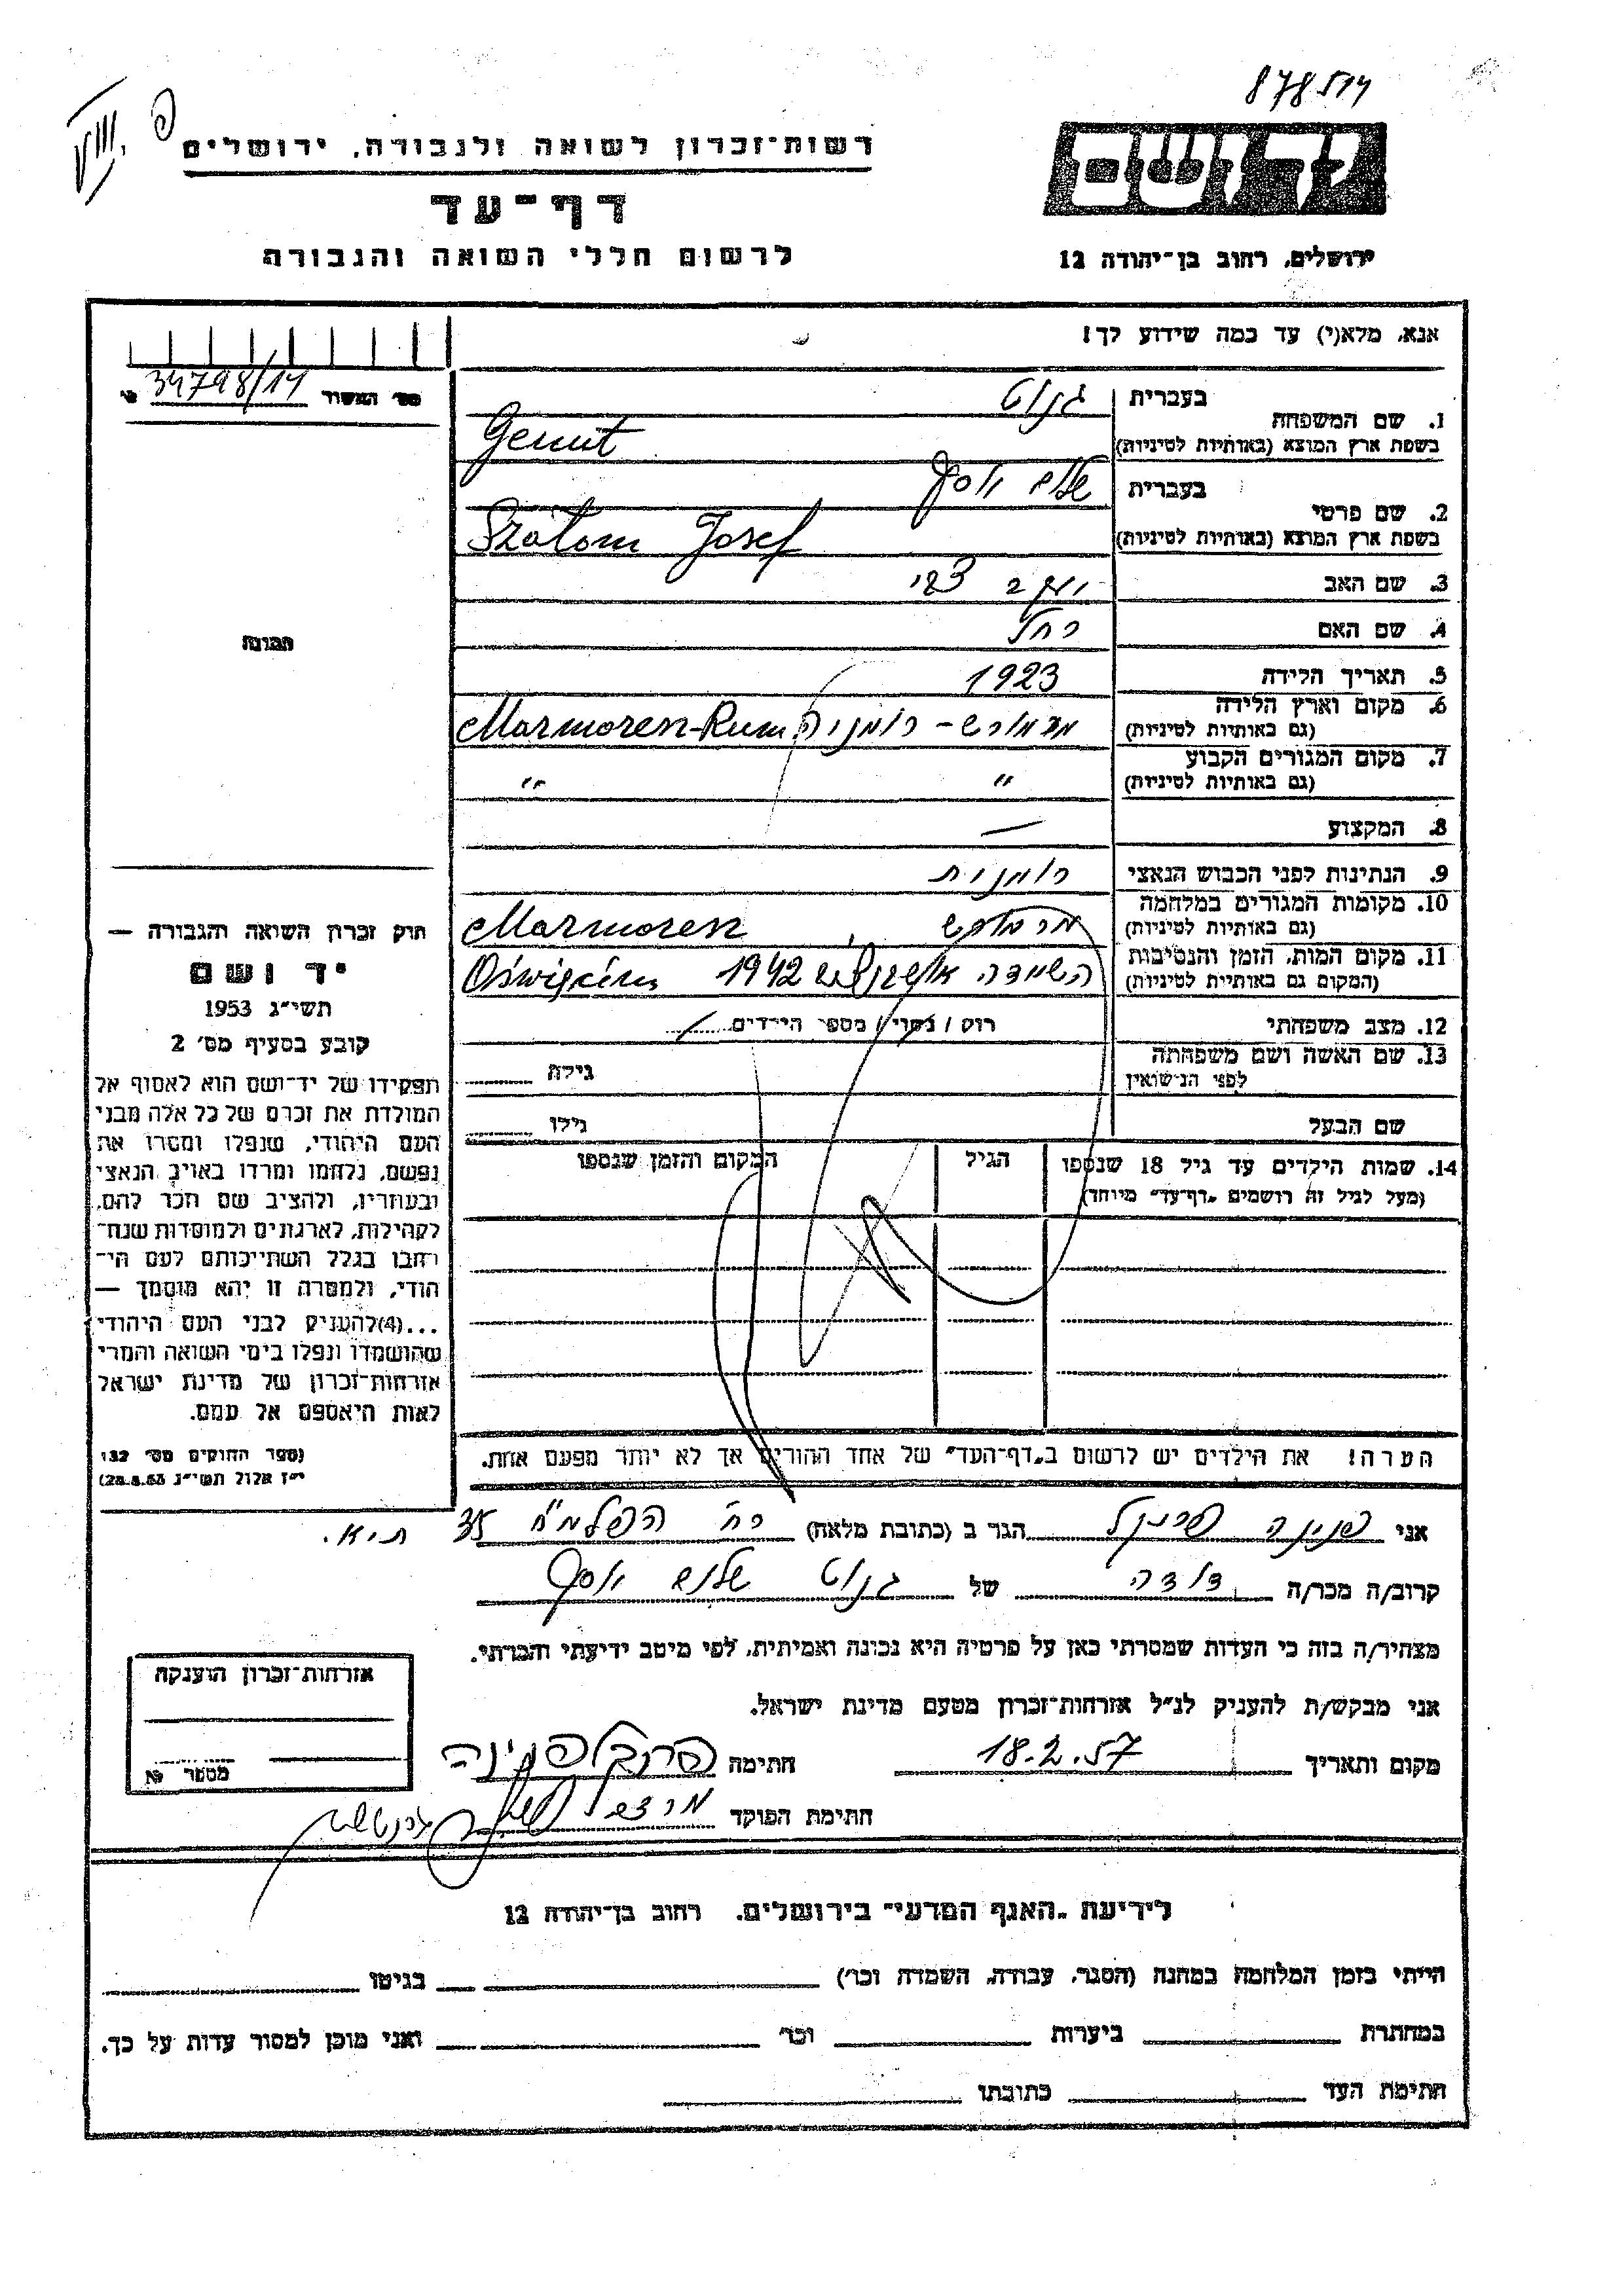 878514
רשות-זכרון לשואה ולגבורה, ירושלים
דף-עד
לרשום חללי השואה והגבורה
ירושלים, רחוב בן-יהודה 12
אנא, מלא(י) עד כמה שידוע לך!
מס' האשור 34798/14
1. שם המשפחה
בעברית גנוט
בשפת ארץ המוצא (באותיות לטיניות) Genut
2. שם פרטי
בעברית שלום יוסף
בשפת ארץ המוצא (באותיות לטיניות) Szalom Josef
3. שם האב יעקב צבי
4. שם האם רחל
5. תאריך הלידה 1923
6. מקום וארץ הלידה
(גם באותיות לטיניות) מרמורש - רומניה Marmoren-Rum
7. מקום המגורים הקבוע
(גם באותיות לטיניות) " "
8. המקצוע —
9. הנתינות לפני הכבוש הנאצי רומנית
10. מקומות המגורים במלחמה
(גם באותיות לטיניות) מרמורש, Marmoren
11. מקום המות, הזמן והנסיבות
(המקום גם באותיות לטיניות) השמדה אושויץ 1942 Oświęcim
12. מצב משפחתי רוק / נשוי / מספר הילדים
13. שם האשה ושם משפחתה
לפני הנישואין גילה
שם הבעל גילו
14. שמות הילדים עד גיל 18 שנספו הגיל המקום והזמן שנספו
(מעל לגיל זה רושמים "דף-עד" מיוחד)
הערה! את הילדים יש לרשום ב"דף-העד" של אחד ההורים אך לא יותר מפעם אחת.
תמונה
חוק זכרון השואה והגבורה —
יד ושם
תשי"ג 1953
קובע בסעיף מס' 2
תפקידו של יד-ושם הוא לאסוף אל
המולדת את זכרם של כל אלה מבני
העם היהודי, שנפלו ומסרו את
נפשם, נלחמו ומרדו באויב הנאצי
ובעוזריו, ולהציב שם וזכר להם,
לקהילות, לארגונים ולמוסדות שנח-
רבו בגלל השתייכותם לעם הי-
הודי, ולמטרה זו יהא מוסמך —
...(4)להעניק לבני העם היהודי
שהושמדו ונפלו בימי השואה והמרי
אזרחות-זכרון של מדינת ישראל
לאות היאספם אל עמם.
(ספר החוקים מס' 132
י"ז אלול תשי"ג 28.8.53)
אני פנינה פרנקל הגר ב (כתובת מלאה) רח' הפלמ"ח 35 ת"א.
קרוב/ה מכר/ה דודה של גנוט שלום יוסף
מצהיר/ה בזה כי העדות שמסרתי כאן על פרטיה היא נכונה ואמיתית, לפי מיטב ידיעתי והכרתי.
אני מבקש/ת להעניק לנ"ל אזרחות-זכרון מטעם מדינת ישראל.
מקום ותאריך 18.2.57 חתימה
חתימת הפוקד
אזרחות-זכרון הוענקה
מספר №
לידיעת "האגף המדעי" בירושלים, רחוב בן-יהודה 12
הייתי בזמן המלחמה במחנה (הסגר, עבודה, השמדה וכו') בגיטו
במחתרת ביערות וכו' ואני מוכן למסור עדות על כך.
חתימת העד כתובתו